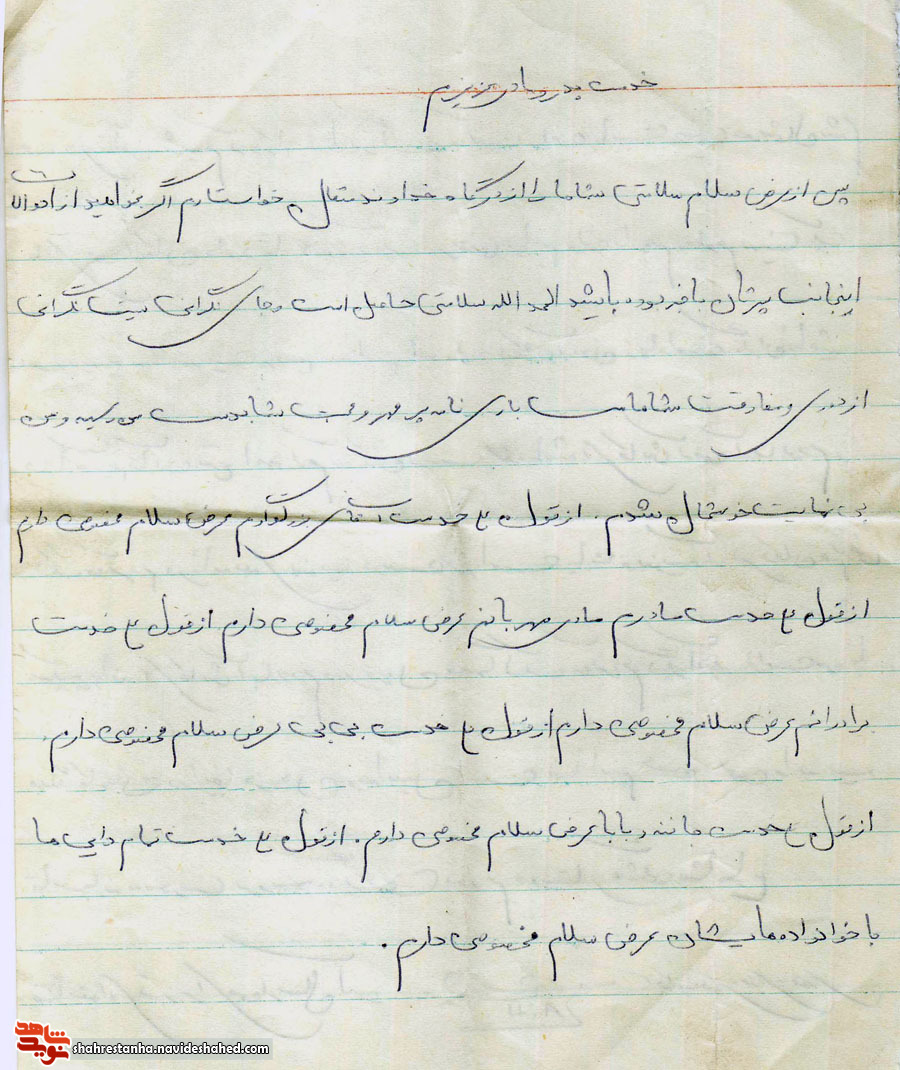 خدمت پدر و مادر عزیزم
پس از عرض سلام سلامتی شما را از درگاه خداوند متعال خواستارم اگر بخواهید از احوالات
اینجانب پرشان باخبر بوده باشید الحمد الله سلامتی حاصل است و جای نگرانی نیست نگرانی
از دوری و مفارقت شماست باری نامه پر مهر و محبت شما بدست من رسید و من
بی نهایت خوشحال شدم . از قول من خدمت آقای بزرگوارم عرض سلام مخصوصی دارم
از قول من خدمت مادرم مادر مهربانم عرض سلام مخصوصی دارم از قول من خدمت
برادرانم عرض سلام مخصوصی دارم از قول من خدمت بی بی عرض سلام مخصوصی دارم .
از قول من خدمت و بابا عرض سلام مخصوصی دارم . از قول من خدمت تمام دایی ها
با خوانواده هایشان عرض سلام مخصوصی دارم .
شاهد
نوید
shahrestanha.navideshahed.com